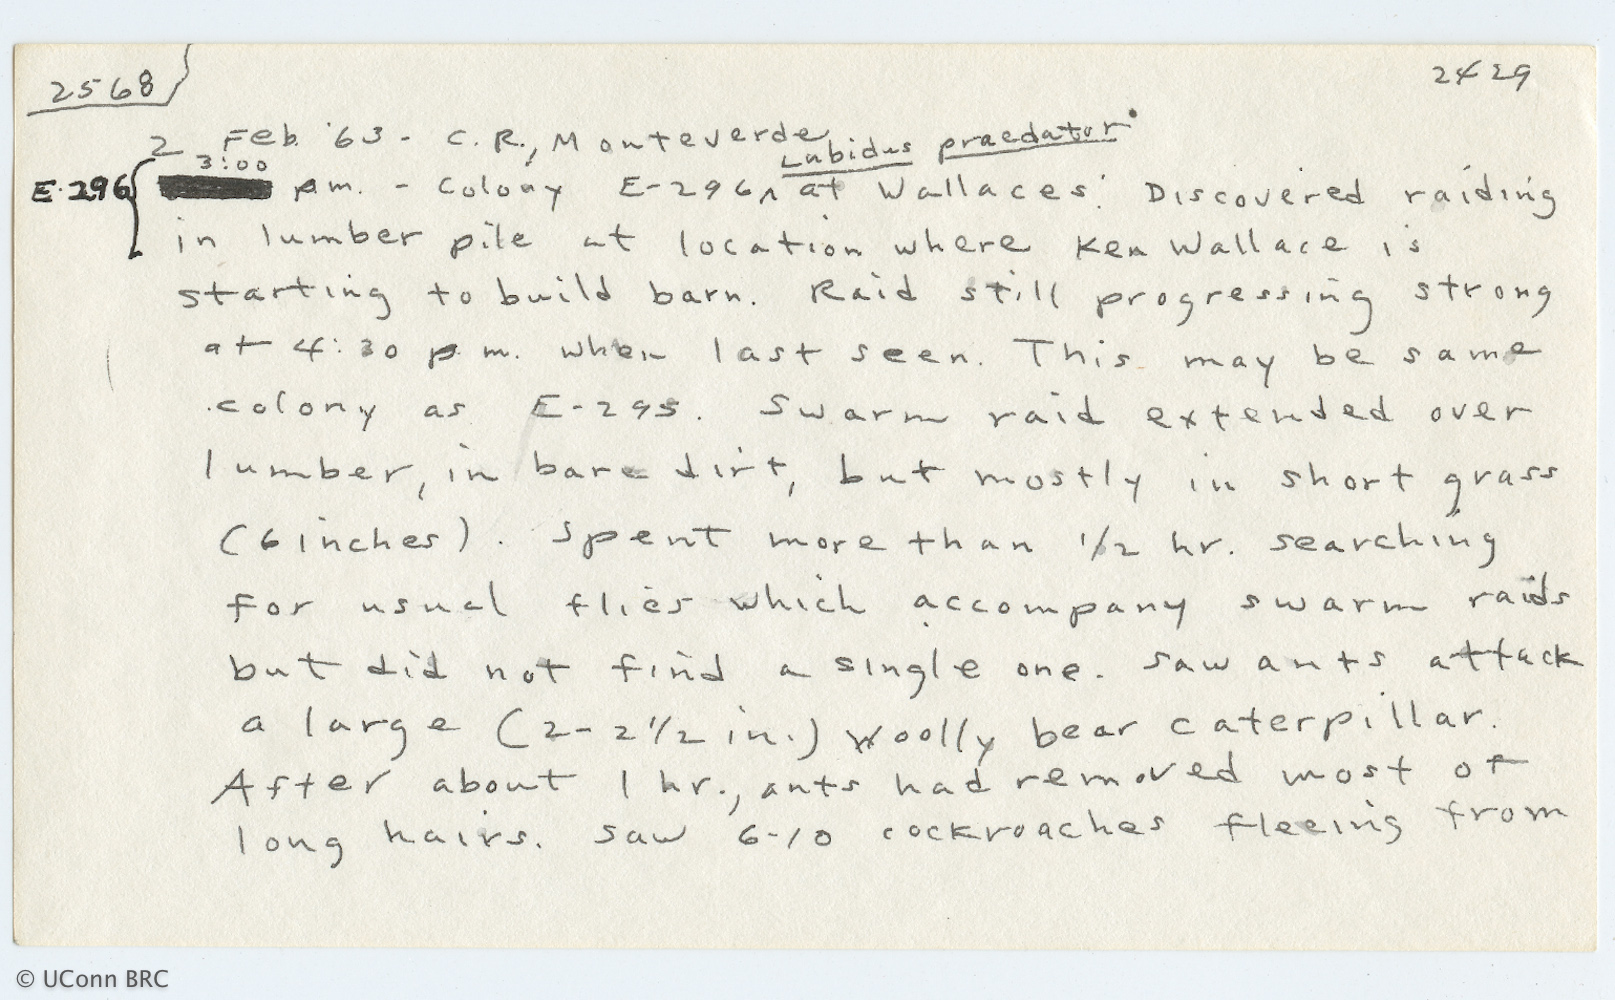 2568
2429
2 Feb. '63 - C.R., Monteverde
3:00 Labidus praedator
E-296 p.m. - Colony E-296 ^ at Wallaces'. Discovered raiding
in lumber pile at location where Ken Wallace is
starting to build barn. Raid still progressing strong
at 4:30 p.m. when last seen. This may be same
colony as E-295. Swarm raid extended over
lumber, in bare dirt, but mostly in short grass
(6 inches). Spent more than 1/2 hr. searching
for usual flies which accompany swarm raids
but did not find a single one. Saw ants attack
a large (2-2 1/2 in.) woolly bear caterpillar.
After about 1 hr., ants had removed most of
long hairs. Saw 6-10 cockroaches fleeing from
© UConn BRC